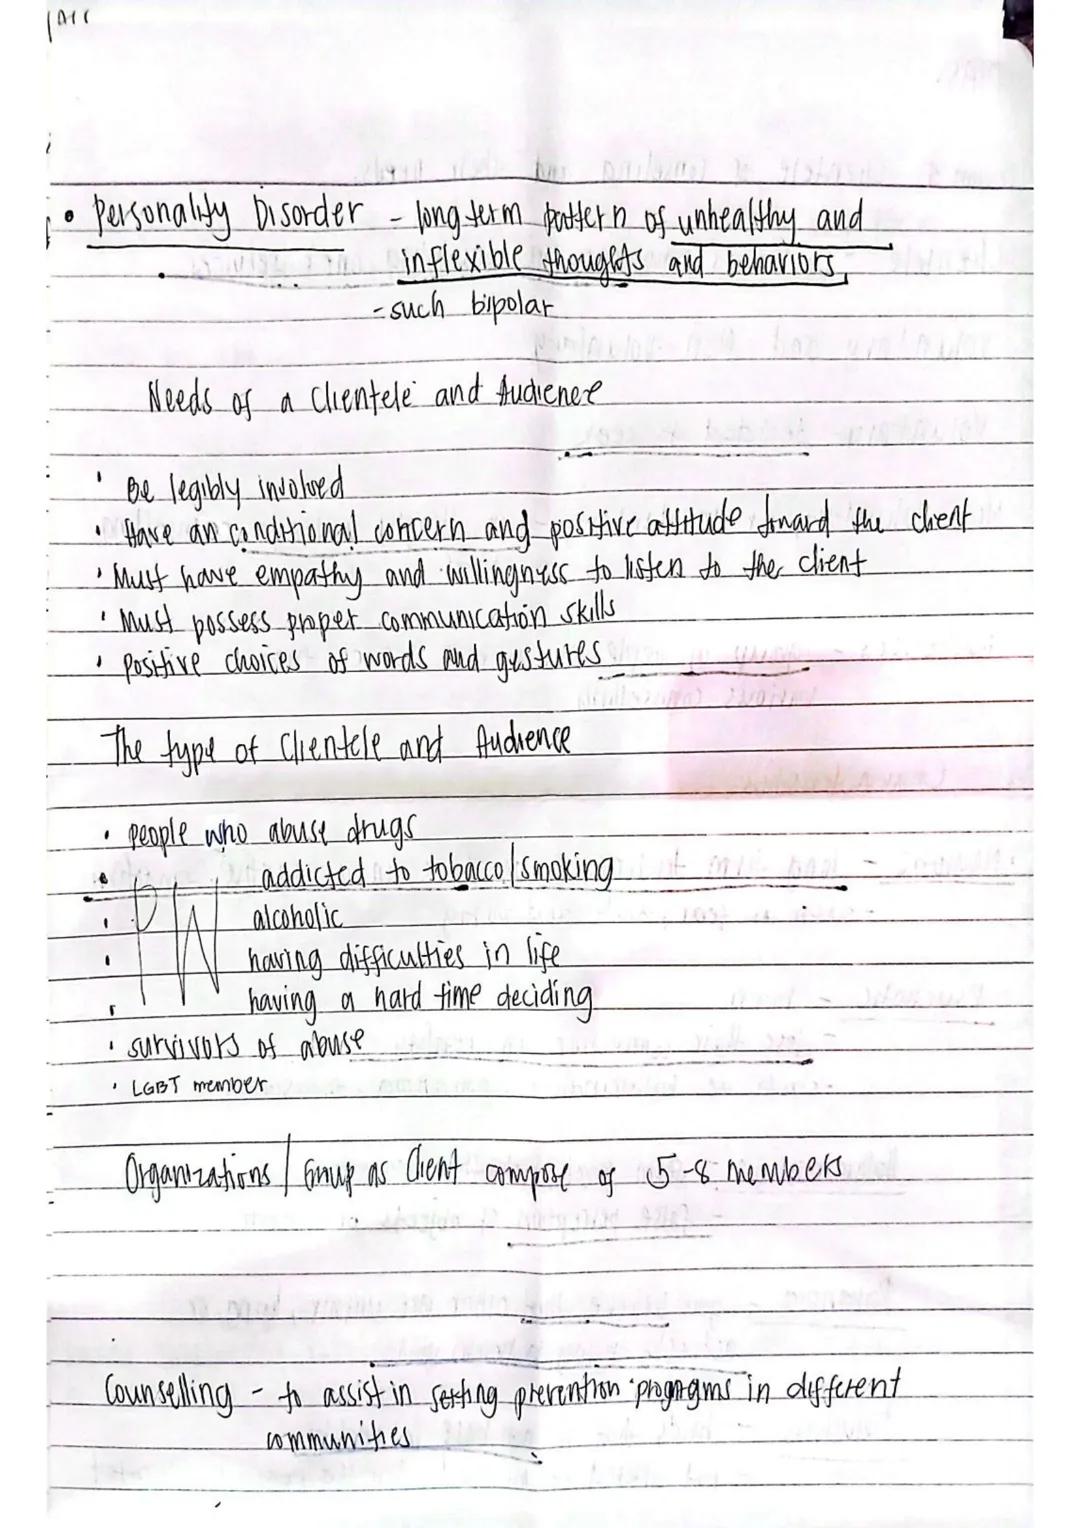 • Personality Disorder - long term pattern of unhealthy and
inflexible thoughts and behaviors
- such bipolar
Needs of a Clientele and Audience
• Be legibly involved
• Have an conditional concern and positive attitude toward the client
• Must have empathy and willingness to listen to the client
• Must possess proper communication skills
• positive choices of words and gestures
The type of Clientele and Audience
• people who abuse drugs
• PW addicted to tobacco/smoking
• alcoholic
• having difficulties in life
• having a hard time deciding
• survivors of abuse
• LGBT member
Organizations / Group as Client compose of 5-8 members
Counselling - to assist in setting prevention programs in different
communities